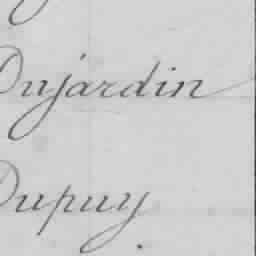 Dujardin
Dupuy